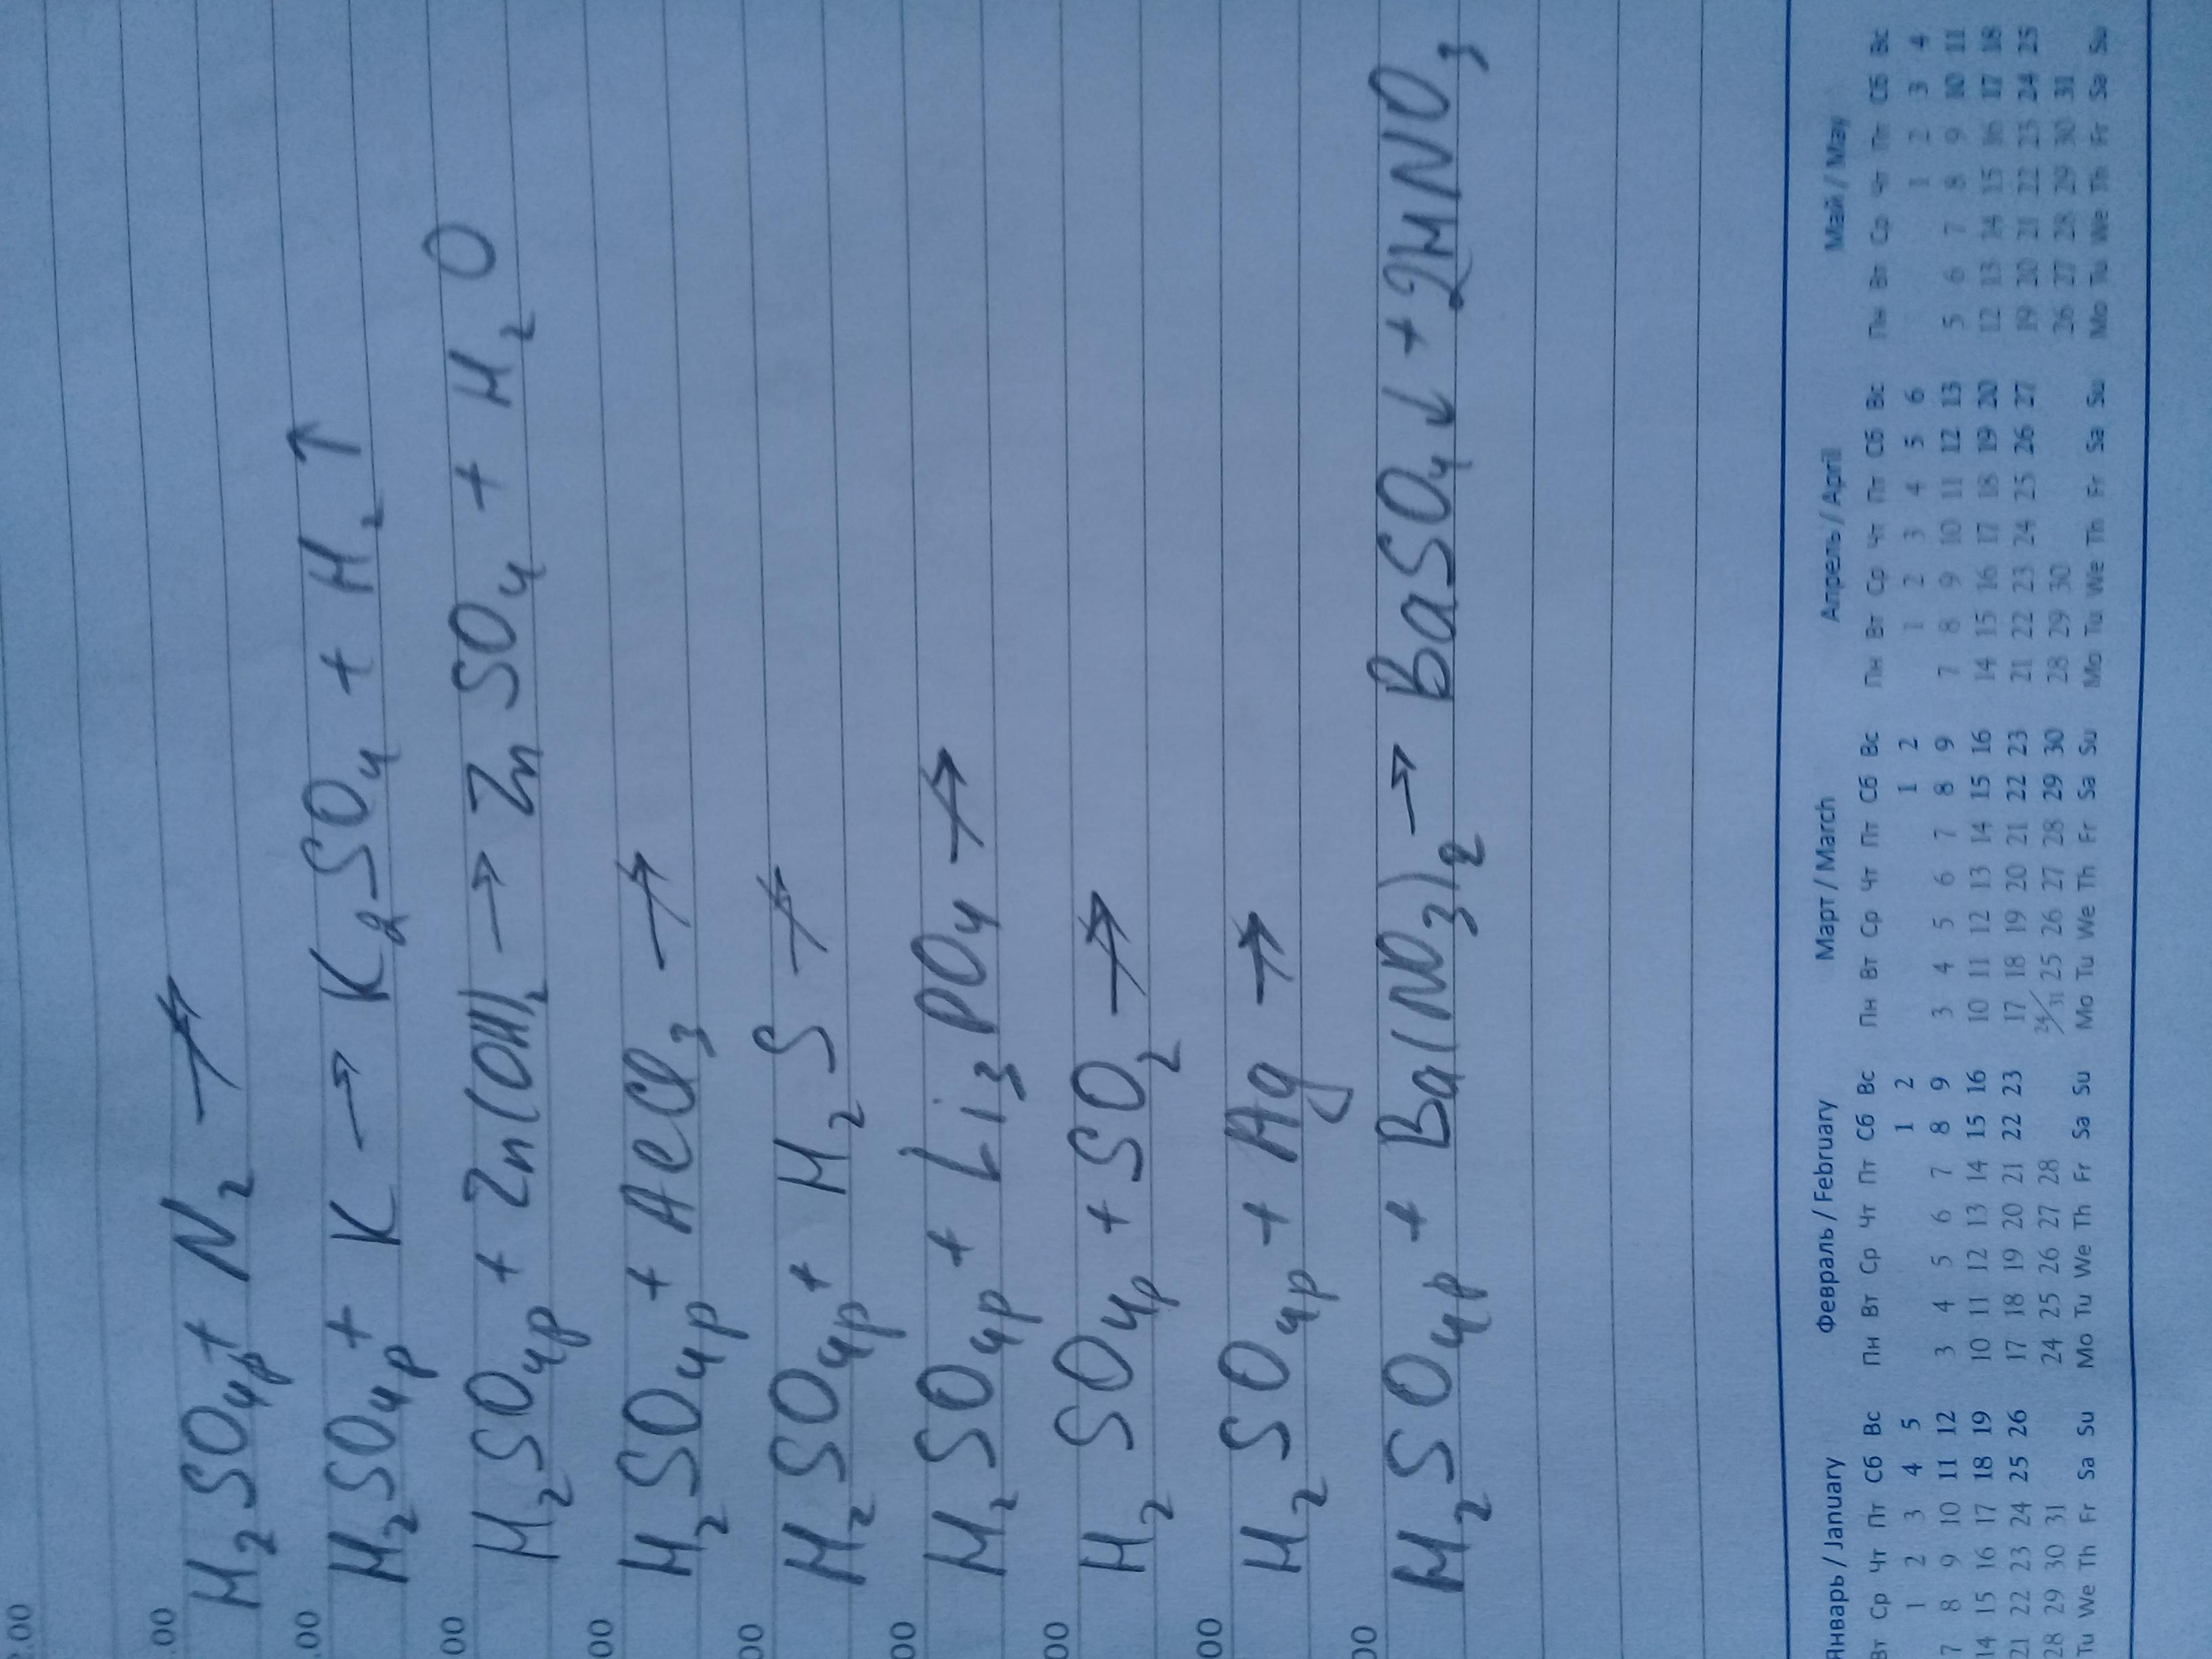 H₂SO₄р + N₂ ↛
H₂SO₄р + K → K₂SO₄ + H₂↑
H₂SO₄р + Zn(OH)₂ → ZnSO₄ + H₂O
H₂SO₄р + AlCl₃ ↛
H₂SO₄р + H₂S ↛
H₂SO₄р + Li₃PO₄ ↛
H₂SO₄р + SO₂ ↛
H₂SO₄р + Ag ↛
H₂SO₄р + Ba(NO₃)₂ → BaSO₄↓ + 2HNO₃
.00
.00
.00
00
00
00
00
00
00
00
Январь / January Февраль / February Март / March Апрель / April Май / May
Вт Ср Чт Пт Сб Вс Пн Вт Ср Чт Пт Сб Вс Пн Вт Ср Чт Пт Сб Вс Пн Вт Ср Чт Пт Сб Вс Пн Вт Ср Чт Пт Сб Вс
1 2 3 4 5 1 2 1 2 1 2 3 4 5 6 1 2 3 4
7 8 9 10 11 12 3 4 5 6 7 8 9 3 4 5 6 7 8 9 7 8 9 10 11 12 13 5 6 7 8 9 10 11
14 15 16 17 18 19 10 11 12 13 14 15 16 10 11 12 13 14 15 16 14 15 16 17 18 19 20 12 13 14 15 16 17 18
21 22 23 24 25 26 17 18 19 20 21 22 23 17 18 19 20 21 22 23 21 22 23 24 25 26 27 19 20 21 22 23 24 25
28 29 30 31 24 25 26 27 28 24/31 25 26 27 28 29 30 28 29 30 26 27 28 29 30 31
Tu We Th Fr Sa Su Mo Tu We Th Fr Sa Su Mo Tu We Th Fr Sa Su Mo Tu We Th Fr Sa Su Mo Tu We Th Fr Sa Su